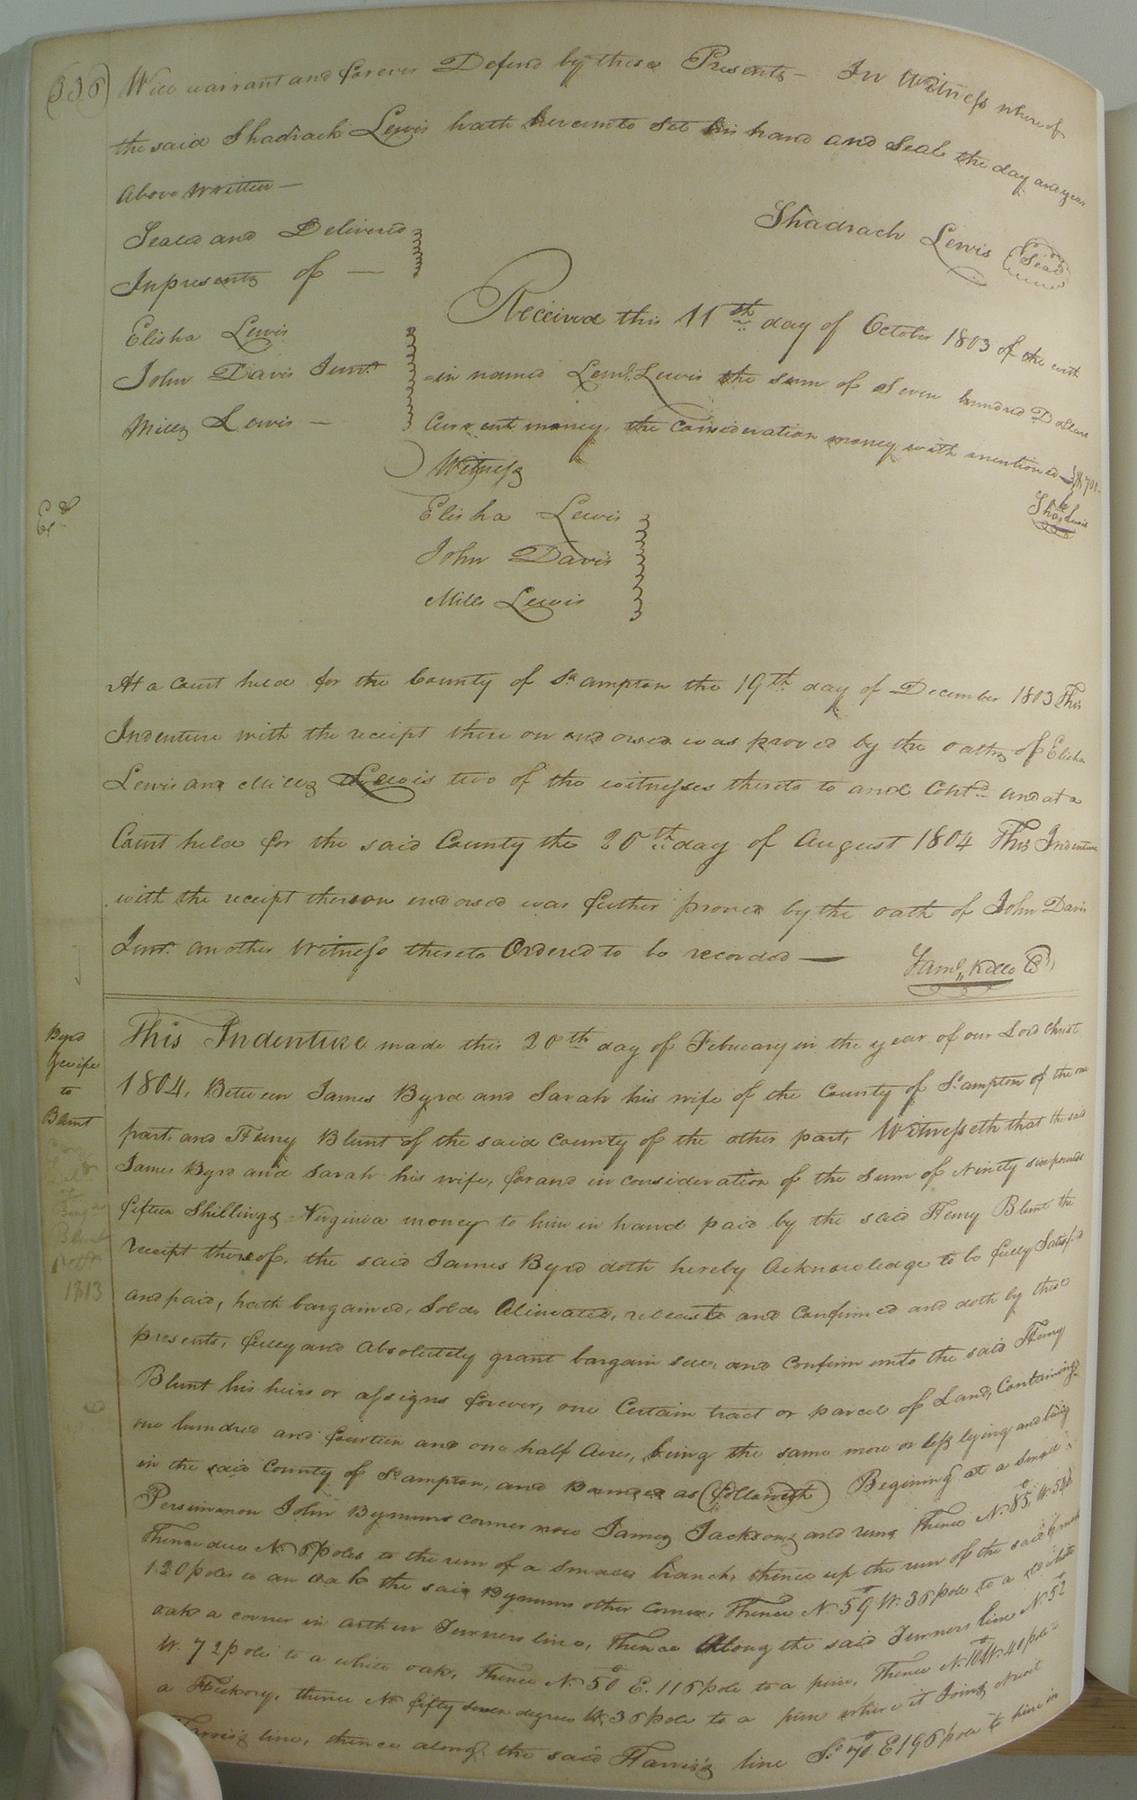 (336) Will warrant and forever Defend by these Presents — In Witness where of
the said Shadrach Lewis hath hereunto Set his hand and Seal the day and year
above Written —
Sealed and Delivered
In presents of —
Shadrach Lewis (Seal)
Elisha Lewis
John Davis Junr.
Mills Lewis —
Received this 11th day of October 1803 of the with
-in named Leml. Lewis the sum of Seven hundred Dollars
Current money, the Consideration money with mentioned
Shad Lewis
Witness
Elisha Lewis
John Davis
Mills Lewis
Exd
At a Court held for the County of So.ampton the 19th day of December 1803 This
Indenture with the receipt there on endorsed was proved by the oaths of Elisha
Lewis and Mills Lewis two of the witnesses thereto to and Contd. and at a
Court held for the said County the 20th day of August 1804 This Indenture
with the receipt thereon endorsed was further proved by the oath of John Davis
Junr. another Witness thereto Ordered to be recorded —
Saml. Kello C
Byrd
& wife
to
Blunt
Henry
Blunt
1813
This Indenture made this 20th day of February in the year of our Lord Christ
1804, Between James Byrd and Sarah his wife of the County of So.ampton of the one
part, and Henry Blunt of the said County of the other part, Witnesseth that the said
James Byrd and Sarah his wife, for and in consideration of the Sum of Ninety six pounds
fifteen Shillings Virginia money to him in hand paid by the said Henry Blunt the
receipt thereof, the said James Byrd doth hereby Acknowledge to be fully Satisfd
and paid, hath bargained, Sold, Alienated, released and Confirmed and doth by these
presents, fully and absolutely grant bargain sell, and Confirm unto the said Henry
Blunt his heirs or assigns forever, one Certain tract or parcel of Land, Containing
one hundred and fourteen and one half Acres, being the same more or less lying and being
in the said County of So.ampton, and Bounded as (followeth) Begining at a small
Persimmon John Bynums corner now James Jacksons and runs Thence No. 85 W. 54
Thence due No. 6 poles to the run of a small branch, thence up the run of the said branch
120 poles to an oak the said Bynums other corner, Thence No. 59 W. 36 pole to a white
oak a corner in Arthur Turners line, Thence Along the said Turners line No. 52
W. 72 pole to a white oak, Thence No. 50 E. 116 pole to a pine, Thence No. 10 W. 40 pole
a Hickory, thence No. fifty seven degrees W. 36 pole to a pine where it Joins
Harris's line, thence along the said Harris's line So. 70 E 196 pole to him in